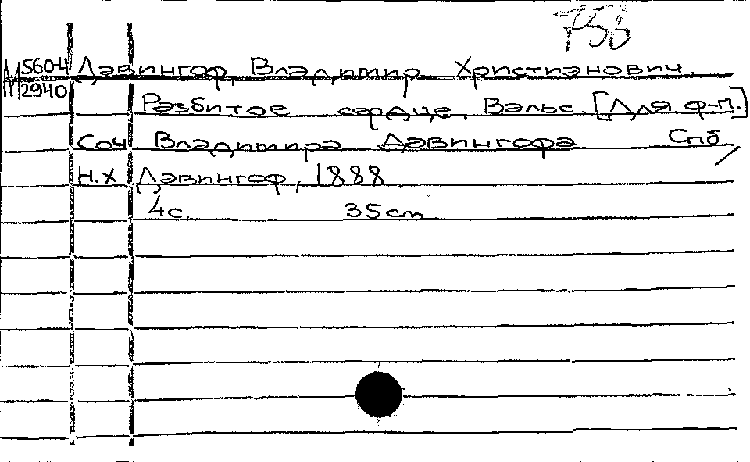 758
М 5604 Дэвингоф, Владимир Христианович.
2940
Разбитое сердце. Вальс. [Для ф-п.]
Соч Владимира Дэвингофа Спб,
Н.Х Дэвингоф, 1888.
4с. 35 cm